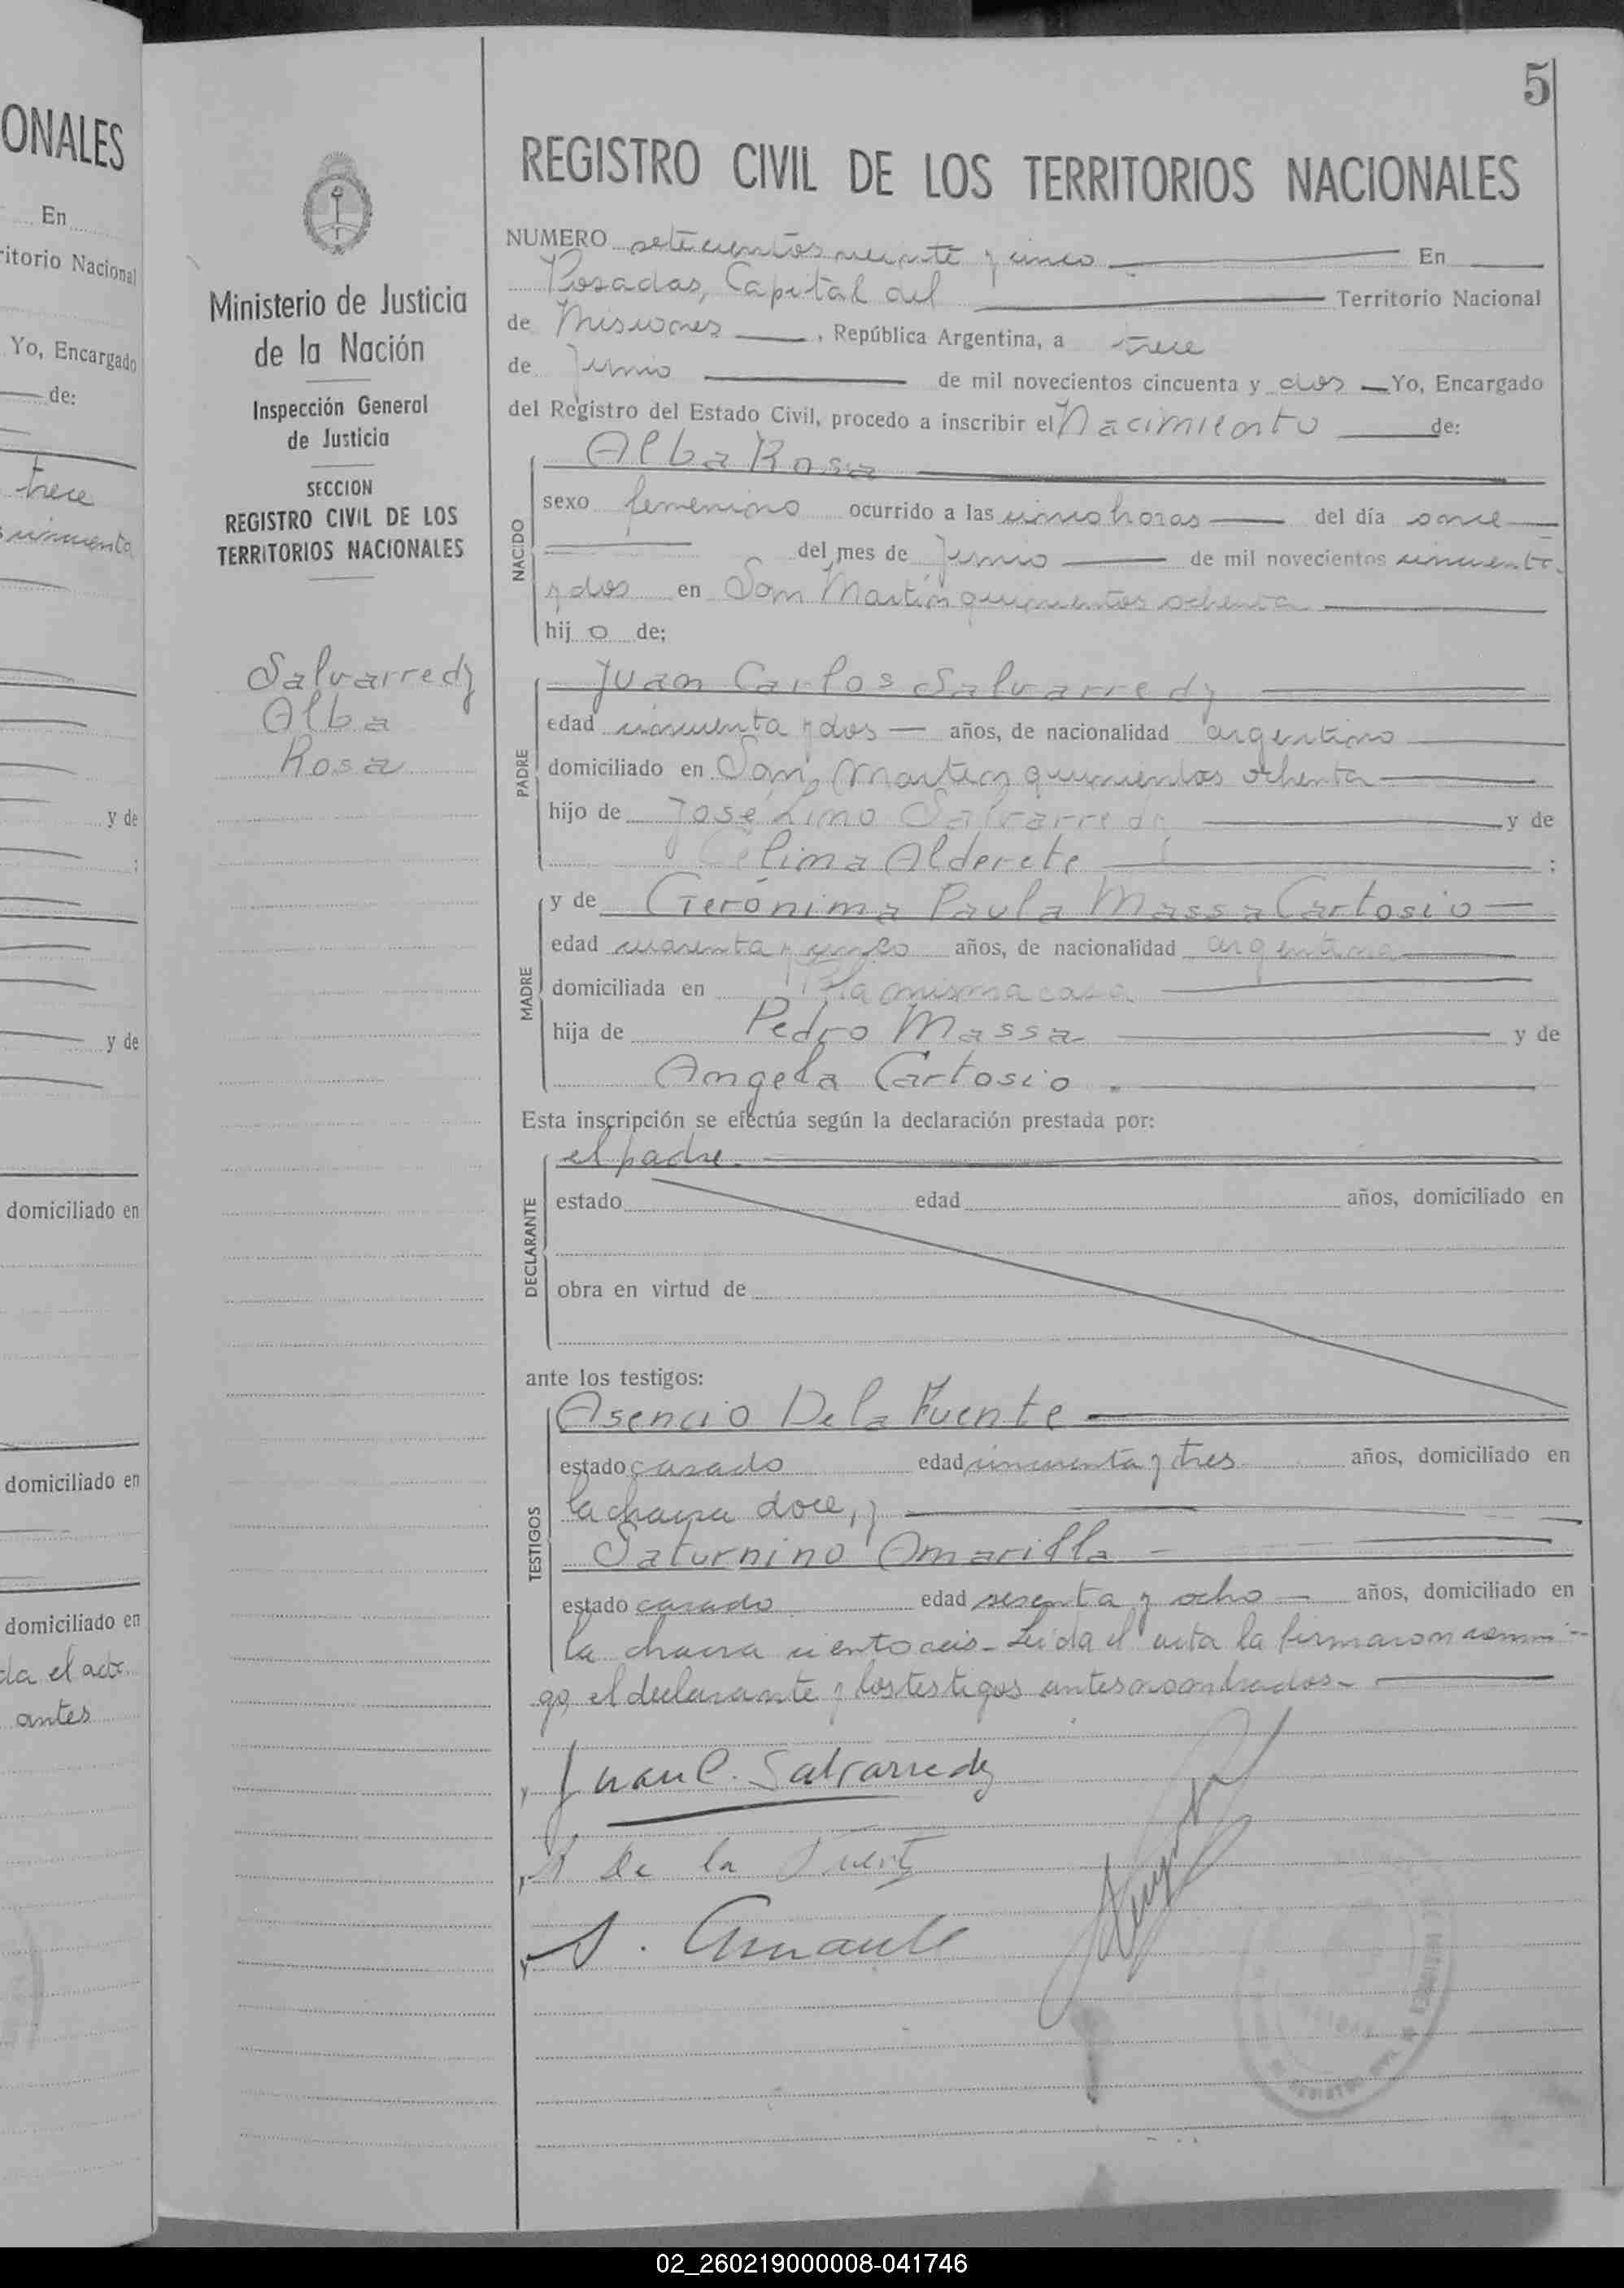 ONALES
En
ritorio Nacional
Yo, Encargado
de:
trece
cincuenta
y de
y de
domiciliado en
domiciliado en
domiciliado en
da el acta
antes
Ministerio de Justicia
de la Nación
Inspección General
de Justicia
SECCION
REGISTRO CIVIL DE LOS
TERRITORIOS NACIONALES
Salvarredy
Alba
Rosa
5
REGISTRO CIVIL DE LOS TERRITORIOS NACIONALES
NUMERO setecientos veinte y cinco En
Posadas, Capital del Territorio Nacional
de Misiones, República Argentina, a trece
de Junio de mil novecientos cincuenta y dos Yo, Encargado
del Registro del Estado Civil, procedo a inscribir el Nacimiento de:
Alba Rosa
NACIDO
sexo femenino ocurrido a las cinco horas del día once
del mes de Junio de mil novecientos cincuenta
y dos en San Martín quinientos ochenta
hij o de;
PADRE
Juan Carlos Salvarredy
edad cincuenta y dos años, de nacionalidad argentino
domiciliado en San Martin quinientos ochenta
hijo de José Limo Salvarredy y de
Celima Alderete ;
MADRE
y de Gerónima Paula Massa Cartosio
edad cuarenta y cinco años, de nacionalidad argentina
domiciliada en la misma casa
hija de Pedro Massa y de
Angela Cartosio.
Esta inscripción se efectúa según la declaración prestada por:
DECLARANTE
el padre.
estado edad años, domiciliado en
obra en virtud de
ante los testigos:
TESTIGOS
Asencio De la Fuente
estado casado edad cincuenta y tres años, domiciliado en
la chacra doce, y
Saturnino Amarilla
estado casado edad sesenta y ocho años, domiciliado en
la chacra ciento seis - Leida el acta la firmaron conmi-
go, el declarante y los testigos antes nombrados.
Juan C. Salvarredy
A De la Fuente
S.
02_260219000008-041746